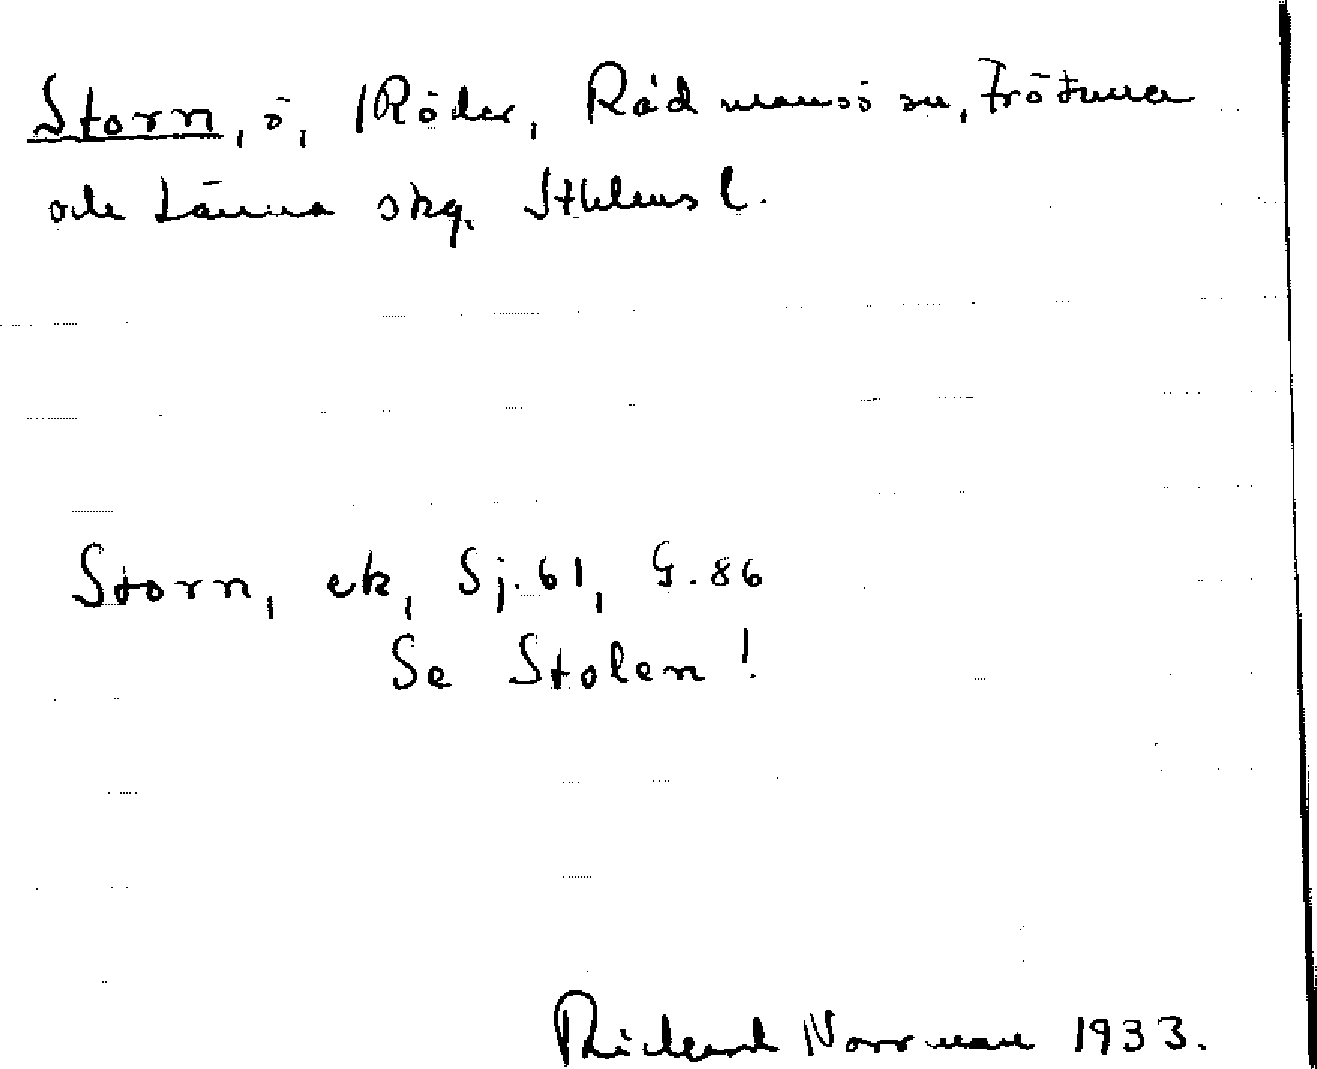 Storn, ö, /Röder, Rådmansö sn, Frötuna
och Länna skg. Sthlms l.
Storn, ek, Sj. 61, G. 86
Se Stolen!
Rickard Norrman 1933.